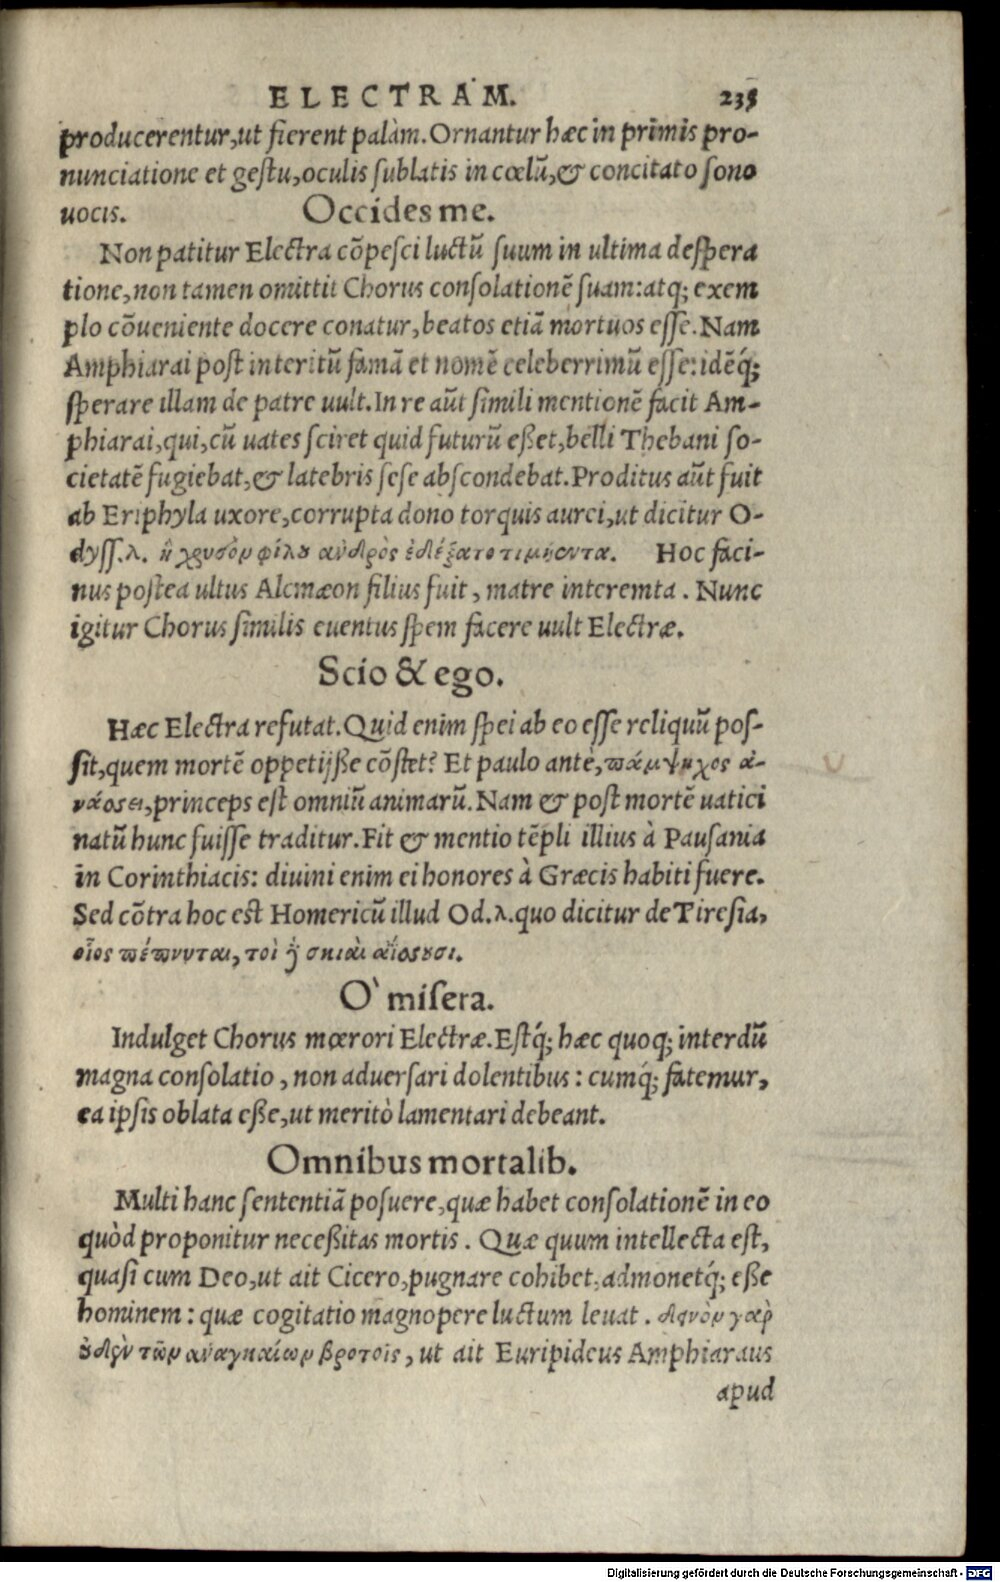 ELECTRAM. 235
producerentur,ut fierent palàm.Ornantur hæc in primis pro-
nunciatione et gestu,oculis sublatis in cœlũ,& concitato sono
uocis. Occides me.
Non patitur Electra cõpesci luctũ suum in ultima despera
tione,non tamen omittit Chorus consolationẽ suam:atq; exem
plo cõueniente docere conatur,beatos etiã mortuos esse.Nam
Amphiarai post interitũ famã et nomẽ celeberrimũ esse:idẽq́;
sperare illam de patre uult.In re aũt simili mentionẽ facit Am-
phiarai,qui,cũ uates sciret quid futurũ eßet,belli Thebani so-
cietatẽ fugiebat,& latebris sese abscondebat.Proditus aũt fuit
ab Eriphyla uxore,corrupta dono torquis aurei,ut dicitur O-
dyss.λ. ἣ χρυσὸν φίλου ἀνδρὸς ἐδέξατο τιμήεντα. Hoc faci-
nus postea ultus Alcmæon filius fuit, matre interemta. Nunc
igitur Chorus similis euentus spem facere uult Electræ.
Scio & ego.
Hæc Electra refutat.Quid enim spei ab eo esse reliquũ pos-
sit,quem mortẽ oppetijße cõstet? Et paulo ante,πάμψυχος ἀ-
νάσσει,princeps est omniũ animarũ.Nam & post mortẽ uatici
natũ hunc fuisse traditur.Fit & mentio tẽpli illius à Pausania
in Corinthiacis: diuini enim ei honores à Græcis habiti fuere.
Sed cõtra hoc est Homericũ illud Od.λ.quo dicitur de Tiresia,
οἶος πέπνυται, τοὶ δὲ σκιαὶ ἀΐσσουσι.
O` misera.
Indulget Chorus mœrori Electræ.Estq́; hæc quoq; interdũ
magna consolatio, non aduersari dolentibus: cumq́; fatemur,
ea ipsis oblata eße,ut meritò lamentari debeant.
Omnibus mortalib.
Multi hanc sententiã posuere,quæ habet consolationẽ in eo
quòd proponitur neceßitas mortis. Quæ quum intellecta est,
quasi cum Deo,ut ait Cicero,pugnare cohibet,admonetq́; eße
hominem: quæ cogitatio magnopere luctum leuat. δεινὸν γὰρ
οὐδὲν τῶν ἀναγκαίων βροτοῖς, ut ait Euripideus Amphiaraus
apud
Digitalisierung gefördert durch die Deutsche Forschungsgemeinschaft - DFG